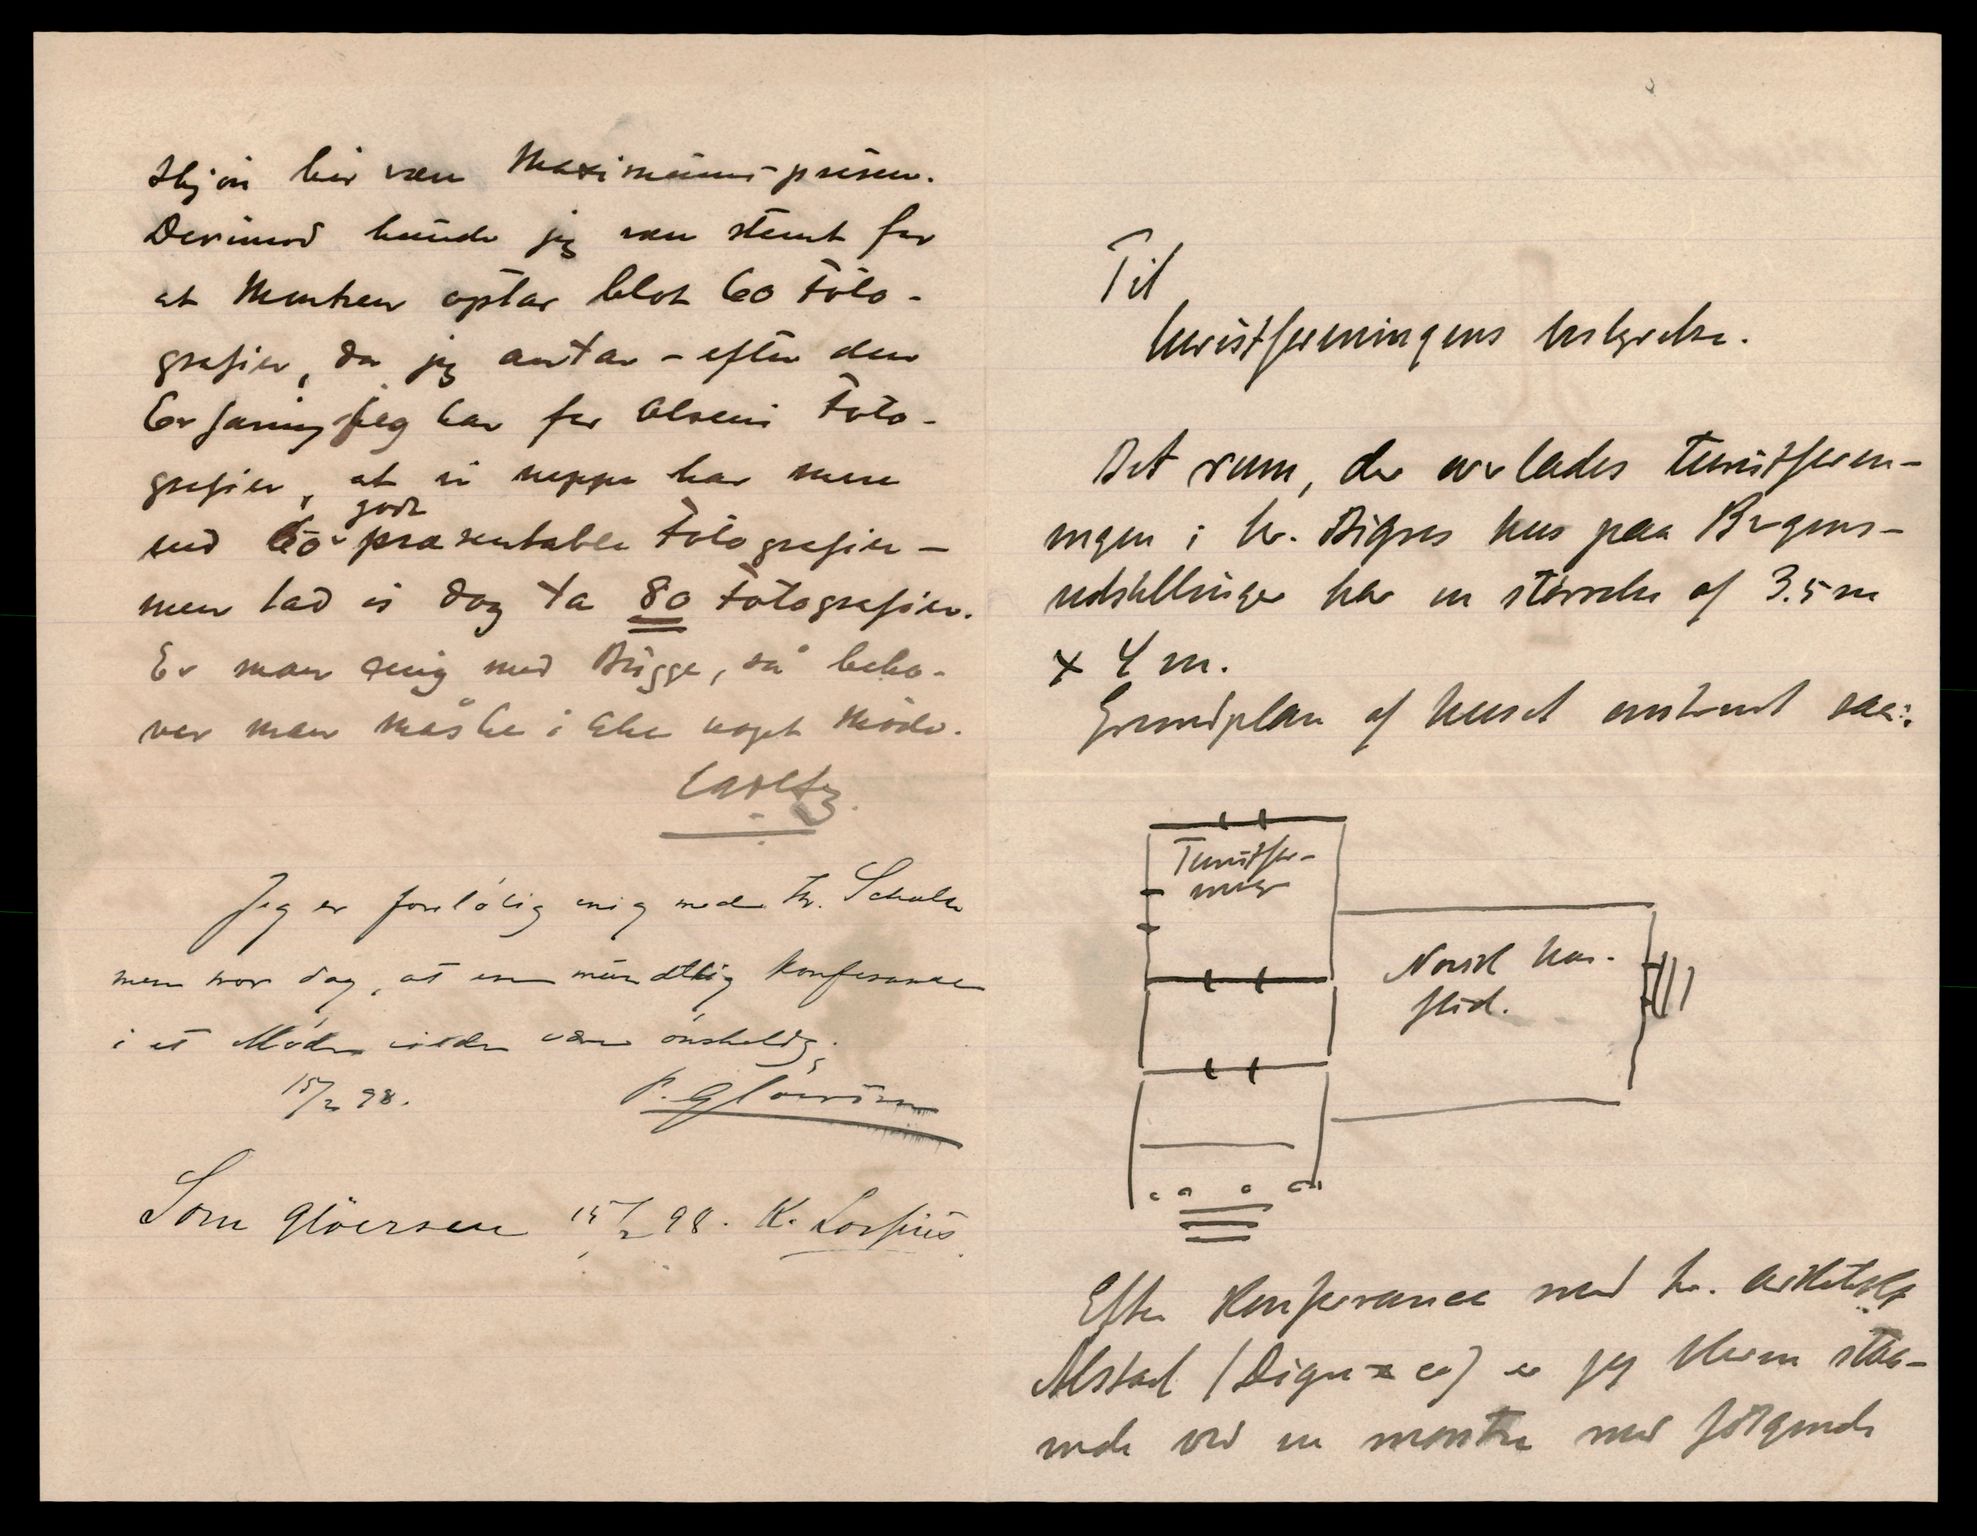 skjön bör være Maximumsprisen.
Derimod kunde jeg være stemt for
at Montren optar blot 60 Foto-
grafier, da jeg antar – efter den
Erfaring jeg har for Olsens Foto-
grafier, at vi neppe har mere
end 60 godt præsentable Fotografier –
men lad os dog ta 80 Fotografier.
Er man enig med Bügge, så behø-
ver man måske ikke noget Møde.
Jeg er foreløbig enig med Hr. Schulz
men tror dog, at en mündtlig Konferance
i et Møde vilde være ønskelig.
15/2 98.
P. Glöersen
Som Glöersen 15/2 98. K. Lossius
Til
turistforeningens bestyrelse.
Det rum, der overlades turistforen-
ingen i hr. Digres hus paa Bergens-
udstillingen har en størrelse af 3.5 m
x 4 m.
Grundplan af huset omtrent saa:
Turistfor-
ening
Norsk hus-
flid.
Efter Konferance med hr. arkitekt
Alstad (Digre & co) er jeg bleven staa-
ende ved en montre med følgende